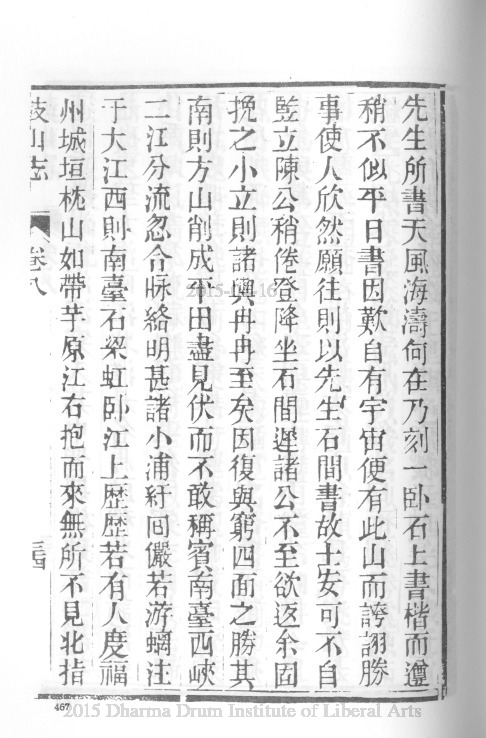 先生所書天風海濤何在乃刻一臥石上書楷而遵
稍不似平日書因歎自有宇宙便有此山而誇詡勝
事使人欣然願往則以先生石間書故士安可不自
竪立陳公稍倦登降坐石間遲諸公不至欲返余固
挽之小立則諸輿冉冉至矣因復與窮四面之勝其
南則方山削成平田盡見伏而不敢稱賓南臺西峽
二江分流忽合脉絡明甚諸小浦紆囘儼若游蜩注
于大江西則南臺石梁虹臥江上歷歷若有人度福
州城垣枕山如帶芋原江右抱而來無所不見北指
鼓山志
卷八
三四
2015-04-16
467
2015 Dharma Drum Institute of Liberal Arts